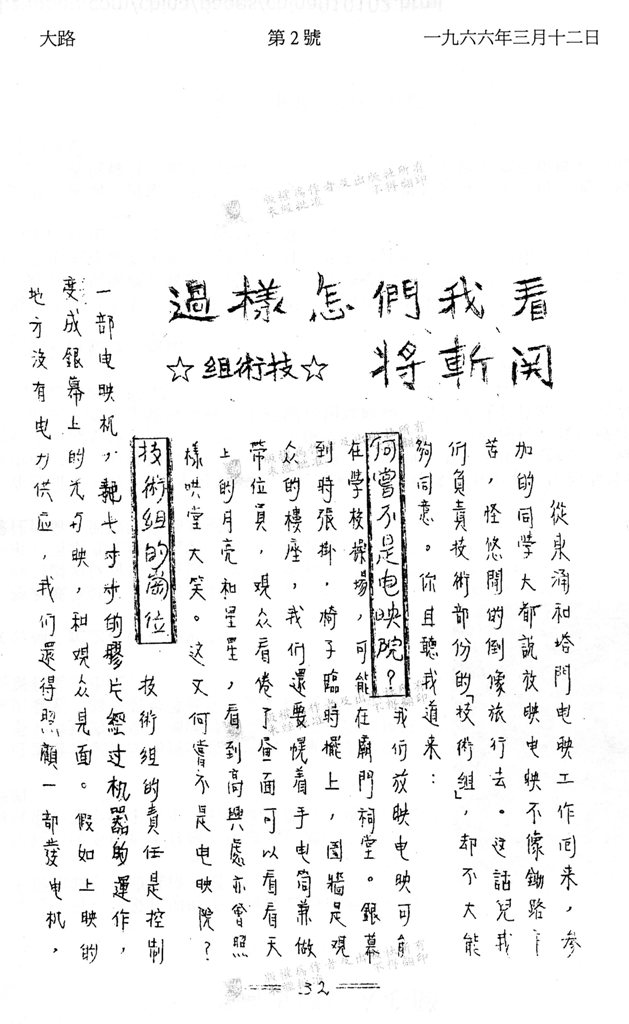 大路
第2號
一九六六年三月十二日
版權為作者及出版社所有
未經批准 不得翻印
看我們怎樣過
関斬將
☆技術組☆
從東涌和塔門电映工作回来，参
加的同学大都説放映电映不像鋤路
苦，怪悠閒的倒像旅行去。这話兒我
们負責技術部份的「技術組」，却不大能
夠同意。你且聽我道来：
何嘗不是电映院？我们放映电映可能
在学校操場，可能在廟門祠堂。銀幕
到時張掛，椅子臨時擺上，圍牆是观
众的樓座，我们還要幌着手电筒兼做
帶位員，观众看倦了畫面可以看看天
上的月亮和星星，看到高興處亦曾照
樣哄堂大笑。这又何嘗不是电映院？
技術組的崗位 技術組的責任是控制
一部电映机，七寸寸的膠片經过机器的運作，
变成銀幕上的光与映，和观众見面。假如上映的
地方沒有电力供应，我们還得照顧一部發电机，
32